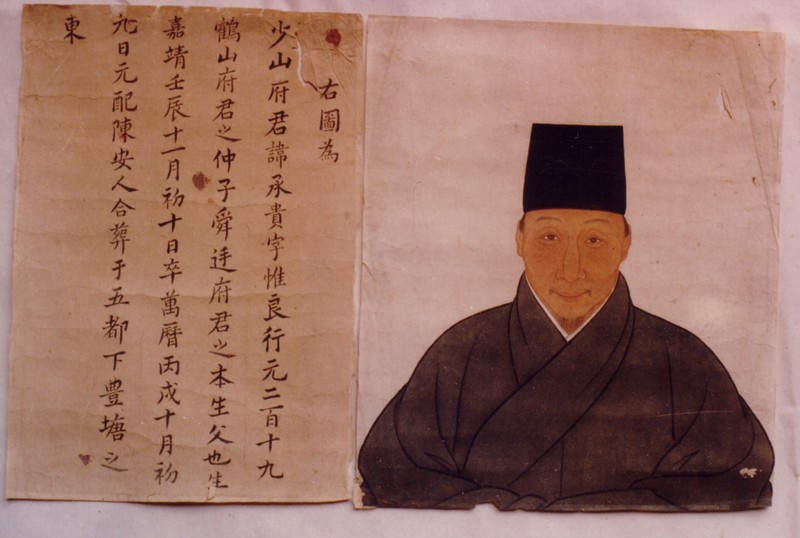 右圖為
少山府君諱承貴字惟良行元二百十九
鶴山府君之仲子舜廷府君之本生父也生
嘉靖壬辰十一月初十日卒萬曆丙戌十月初
九日元配陳安人合葬于五都下豊塘之
東